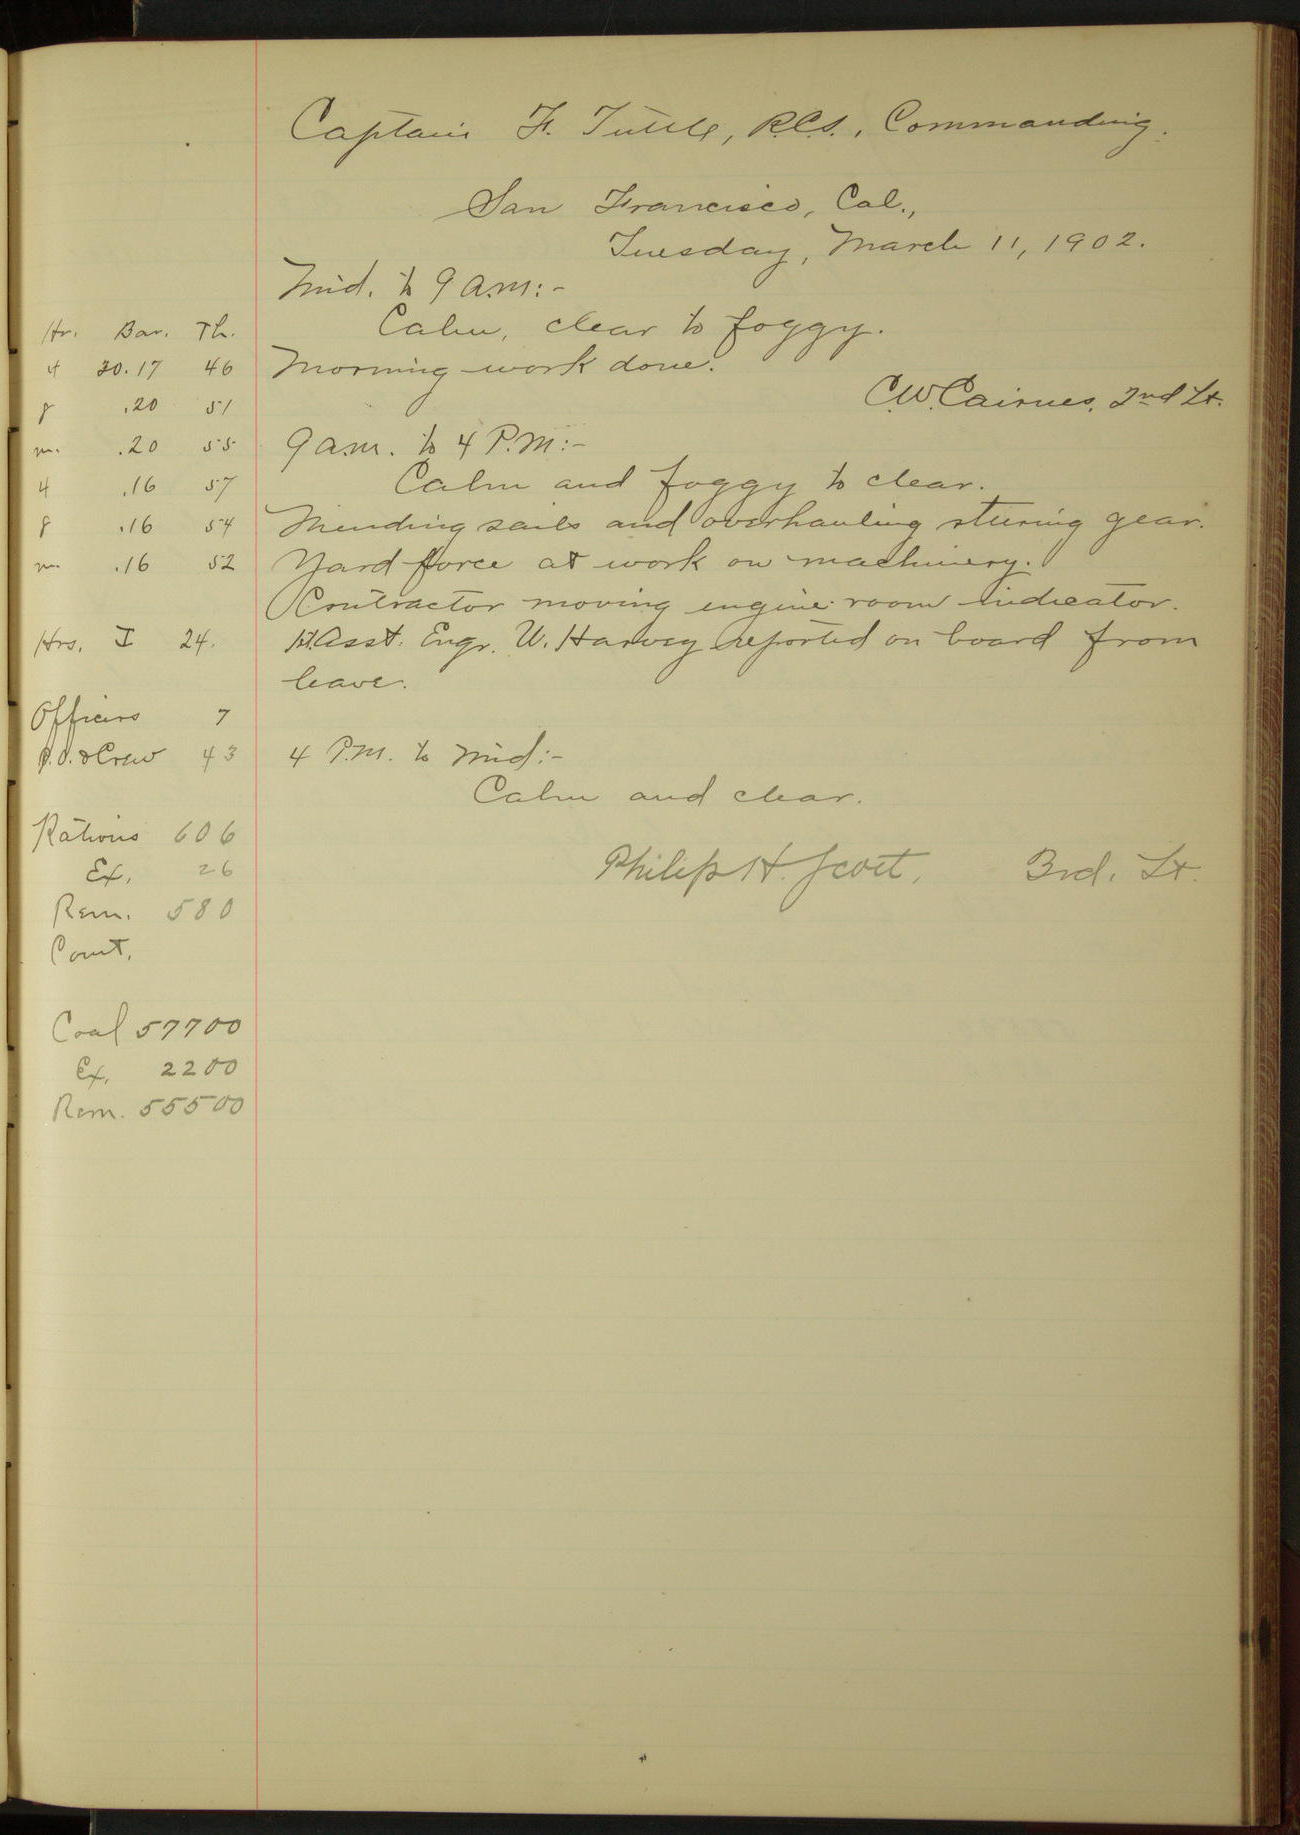 Captain F. Tuttle, R.C.S., Commanding.
San Francisco, Cal.,
Tuesday, March 11, 1902.
Mid. to 9 a.m:-
Hr. Bar. Th.
Calm, clear to foggy.
4 30.17 46
Morning work done.
8 .20 51
C.W. Cairnes, 2nd Lt.
m. .20 55
9 a.m. to 4 P.M:-
4 .16 57
Calm and foggy to clear.
8 .16 54
Mending sails and overhauling steering gear.
m. .16 52
Yard force at work on machinery.
Contractor moving engine room indicator.
Hrs. I 24.
1st. Asst. Engr. W. Harvey reported on board from
leave.
Officers 7
P.O. & Crew 43
4 P.M. to Mid:-
Calm and clear.
Rations 606
Ex. 26
Philip H. Scott, 3rd. Lt.
Rem. 580
Comt.
Coal 57700
Ex. 2200
Rem. 55500